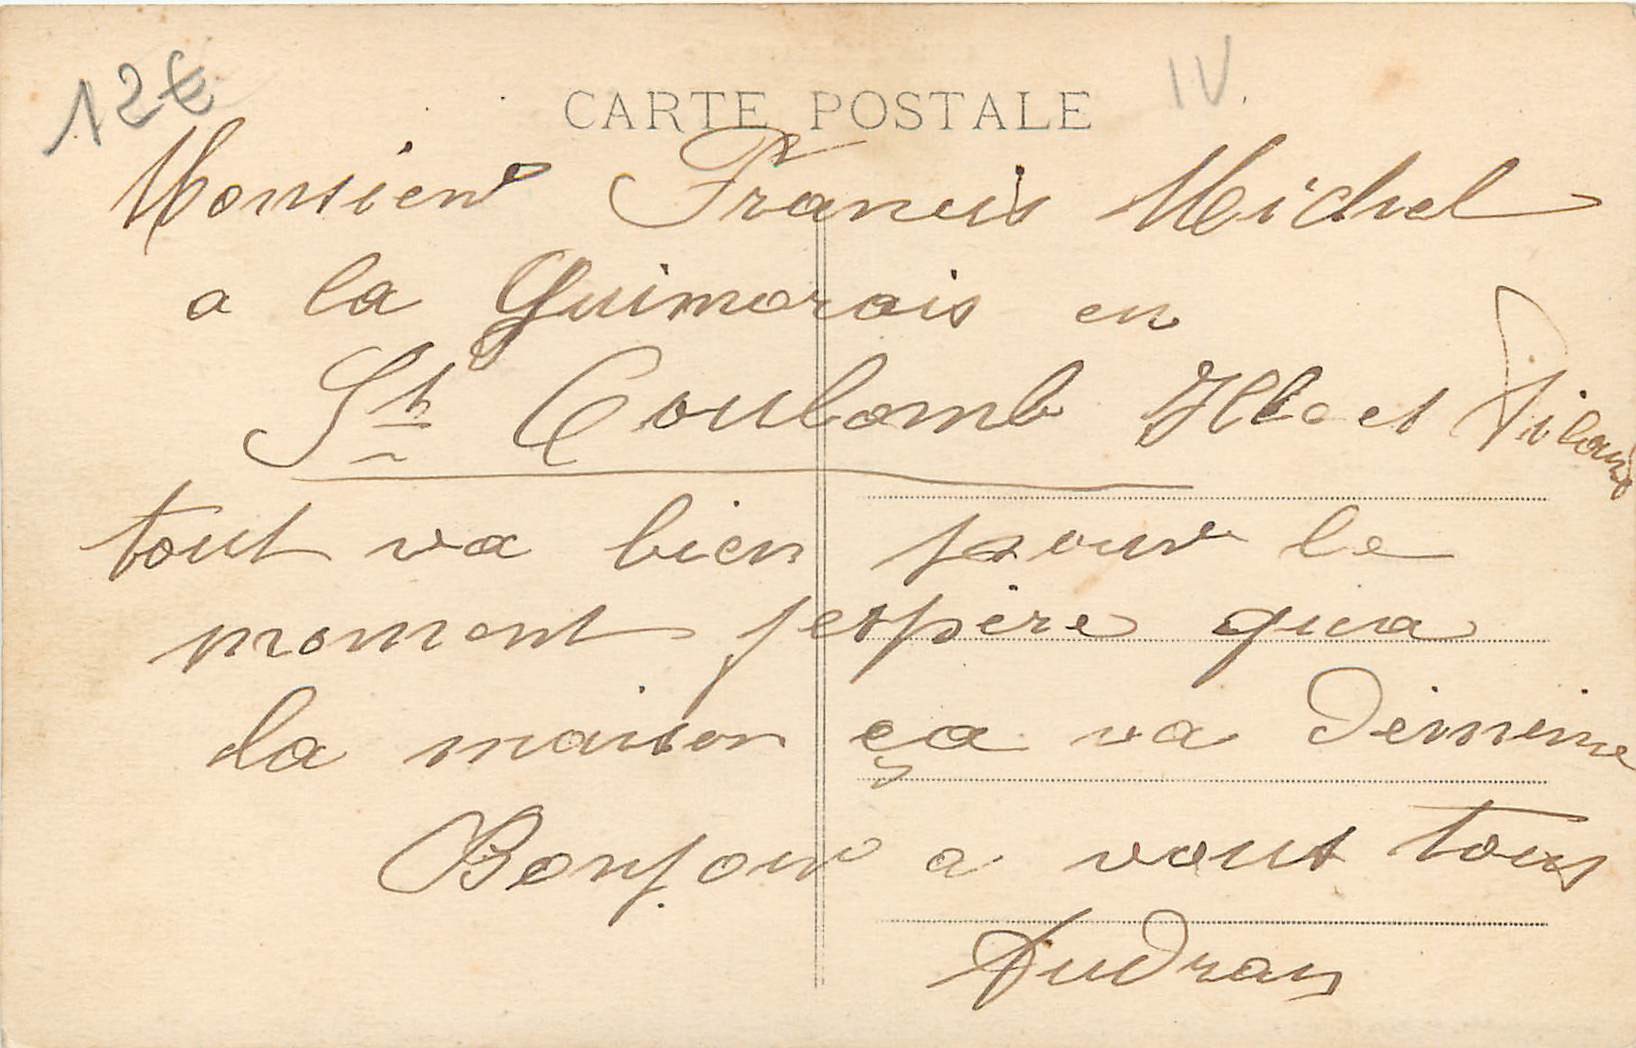 12€
CARTE POSTALE
IV
Monsieur Francis Michel
a la Guimorais en
St Coulomb Ille et Vilaine
tout va bien pour le
moment jespère qua
la maison ça va Deimeime
Bonjour a vous tous
Audran